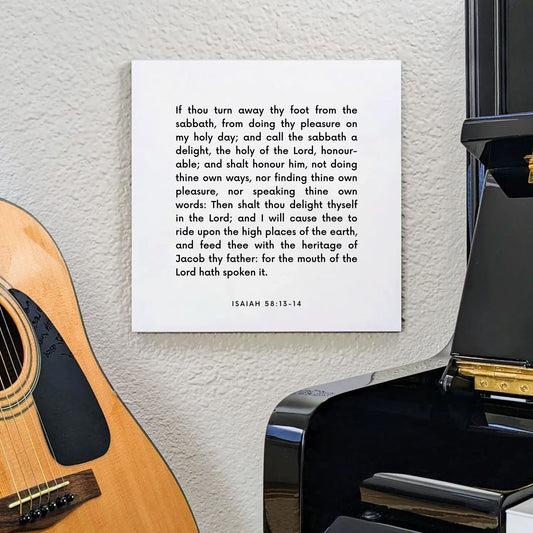 If thou turn away thy foot from the
sabbath, from doing thy pleasure on
my holy day; and call the sabbath a
delight, the holy of the Lord, honour-
able; and shalt honour him, not doing
thine own ways, nor finding thine own
pleasure, nor speaking thine own
words: Then shalt thou delight thyself
in the Lord; and I will cause thee to
ride upon the high places of the earth,
and feed thee with the heritage of
Jacob thy father: for the mouth of the
Lord hath spoken it.
ISAIAH 58:13-14